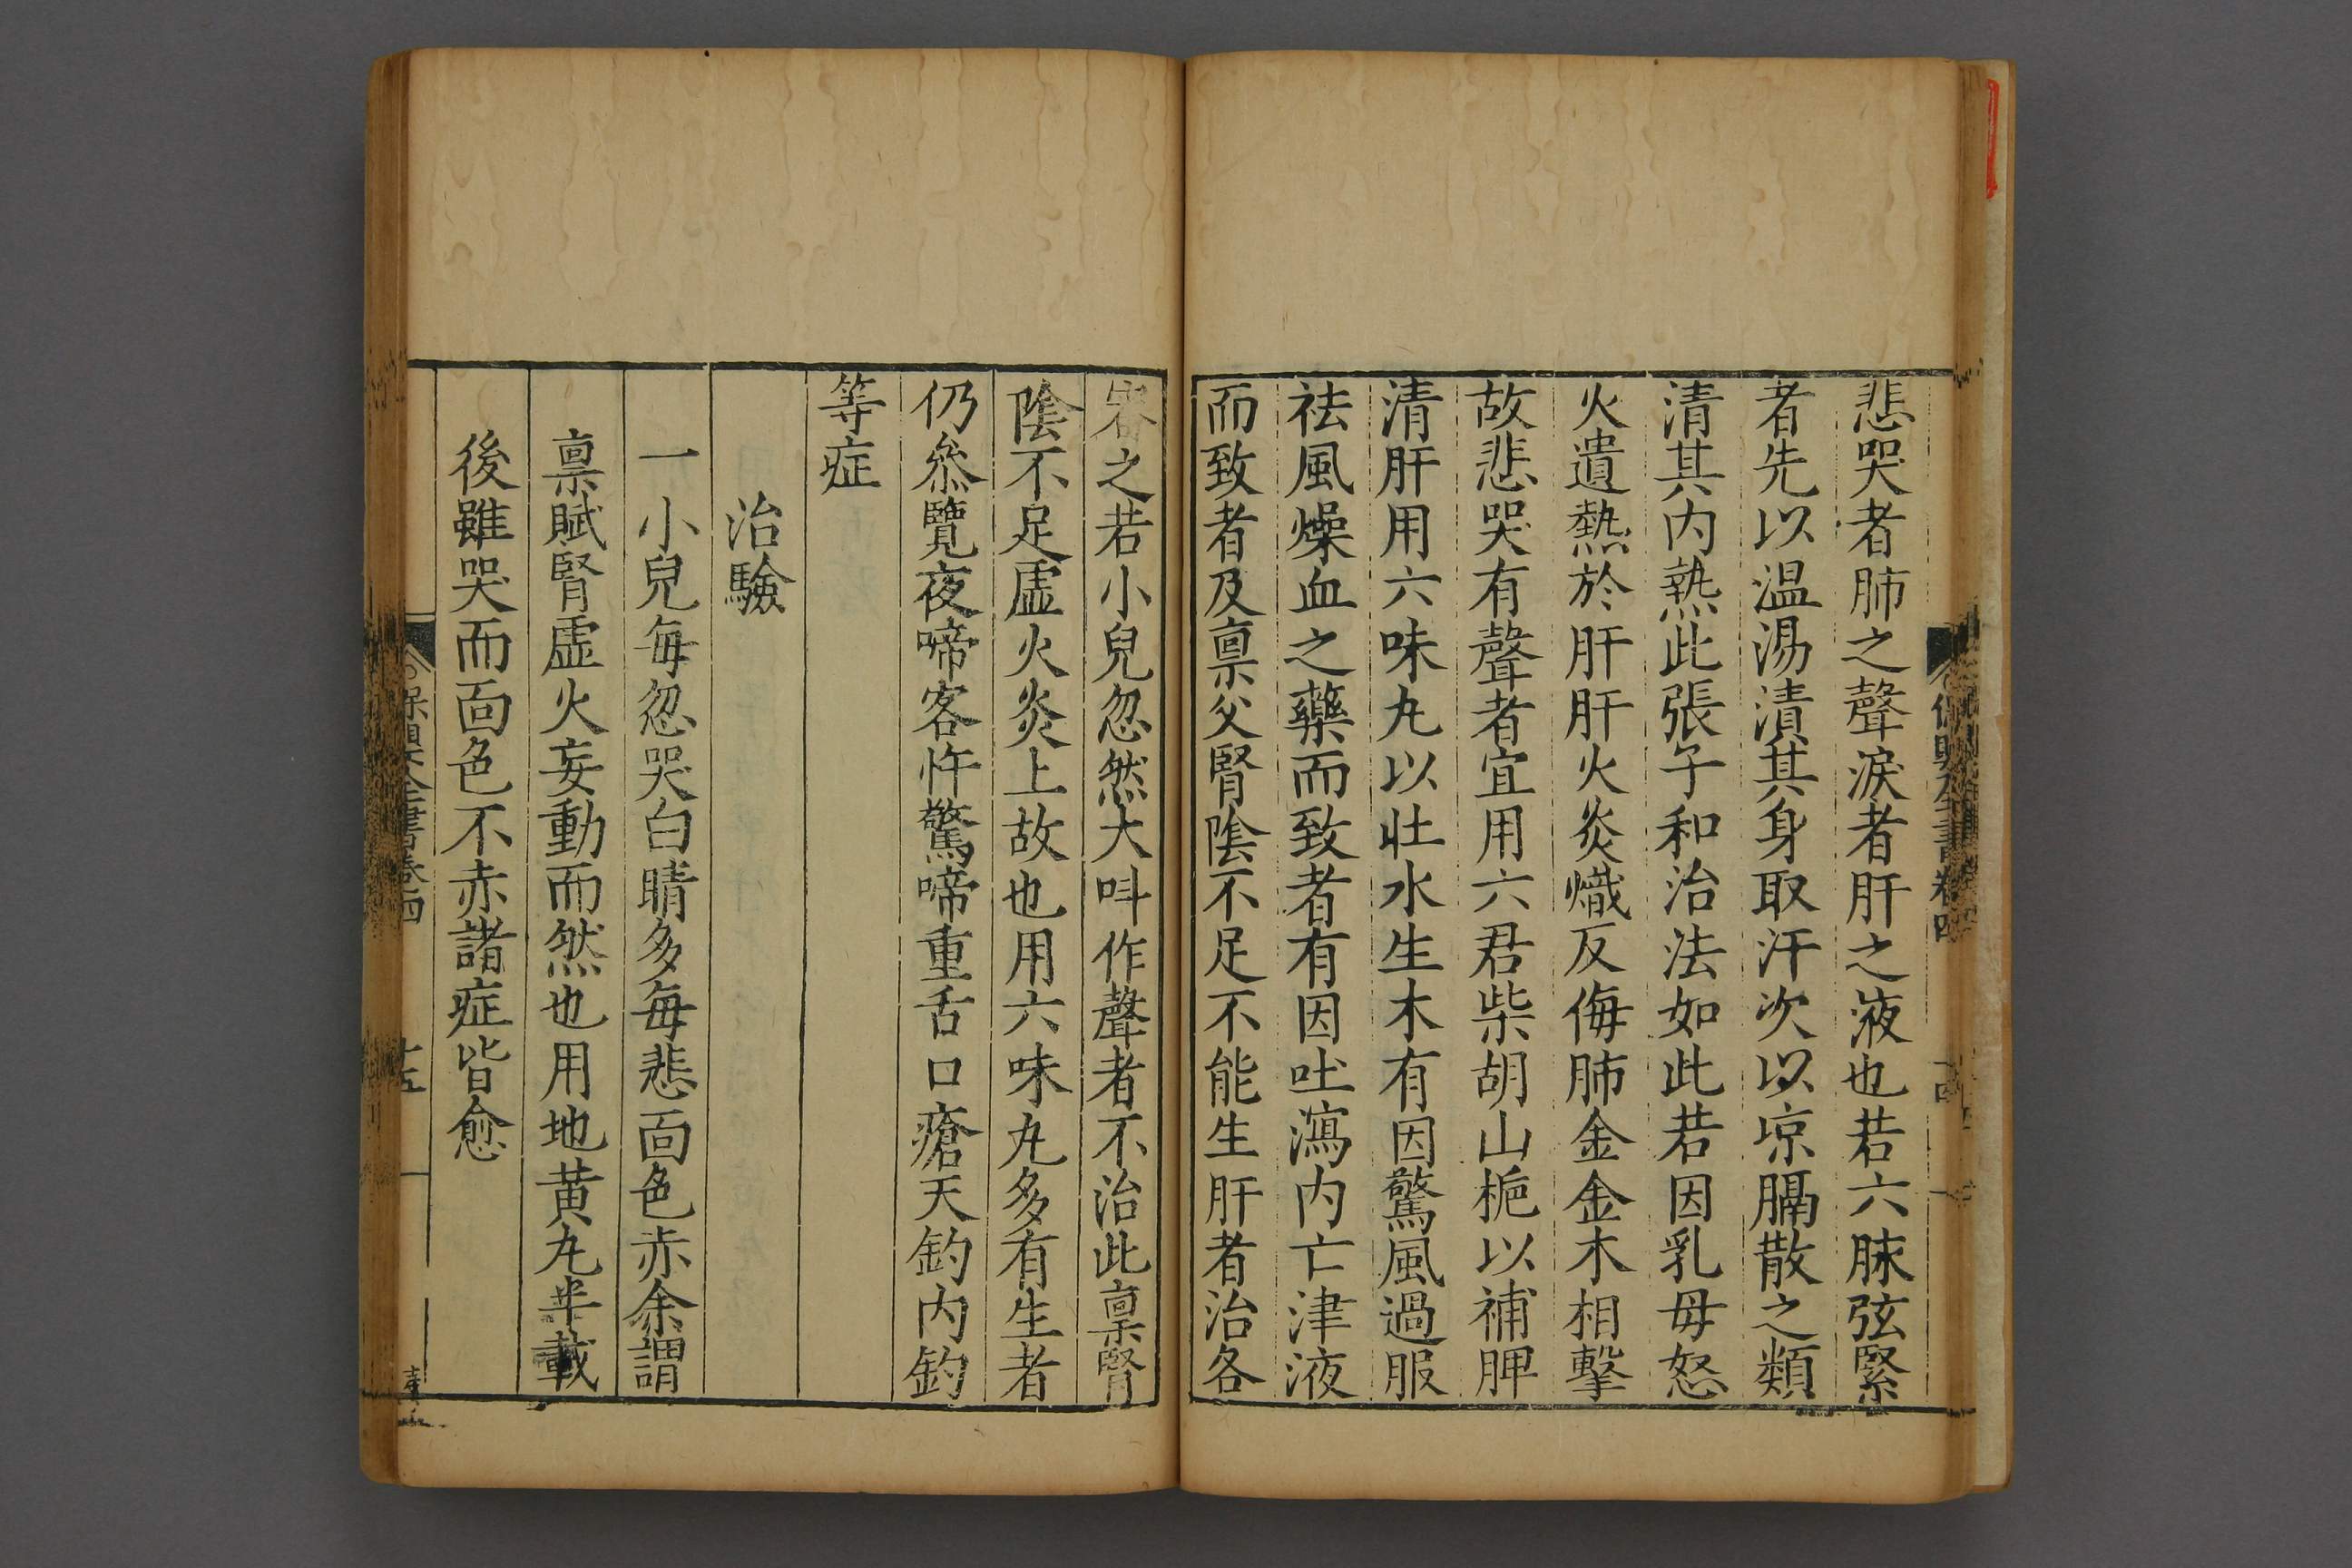 悲哭者肺之聲淚者肝之液也若六脉弦緊
者先以温湯漬其身取汗次以凉膈散之類
清其内熱此張子和治法如此若因乳母怒
火遺熱於肝肝火炎熾反侮肺金金木相擊
故悲哭有聲者宜用六君柴胡山梔以補脾
清肝用六味丸以壯水生木有因驚風過服
祛風燥血之藥而致者有因吐瀉内亡津液
而致者及禀父腎陰不足不能生肝者治各
審之若小兒忽然大呌作聲者不治此禀腎
陰不足虛火炎上故也用六味丸多有生者
仍叅覽夜啼客忤驚啼重舌口瘡天釣内釣
等症
治驗
一小兒每忽哭白睛多每悲面色赤余謂
禀賦腎虛火妄動而然也用地黄丸半載
後雖哭而面色不赤諸症皆愈
保嬰全書卷四
十五